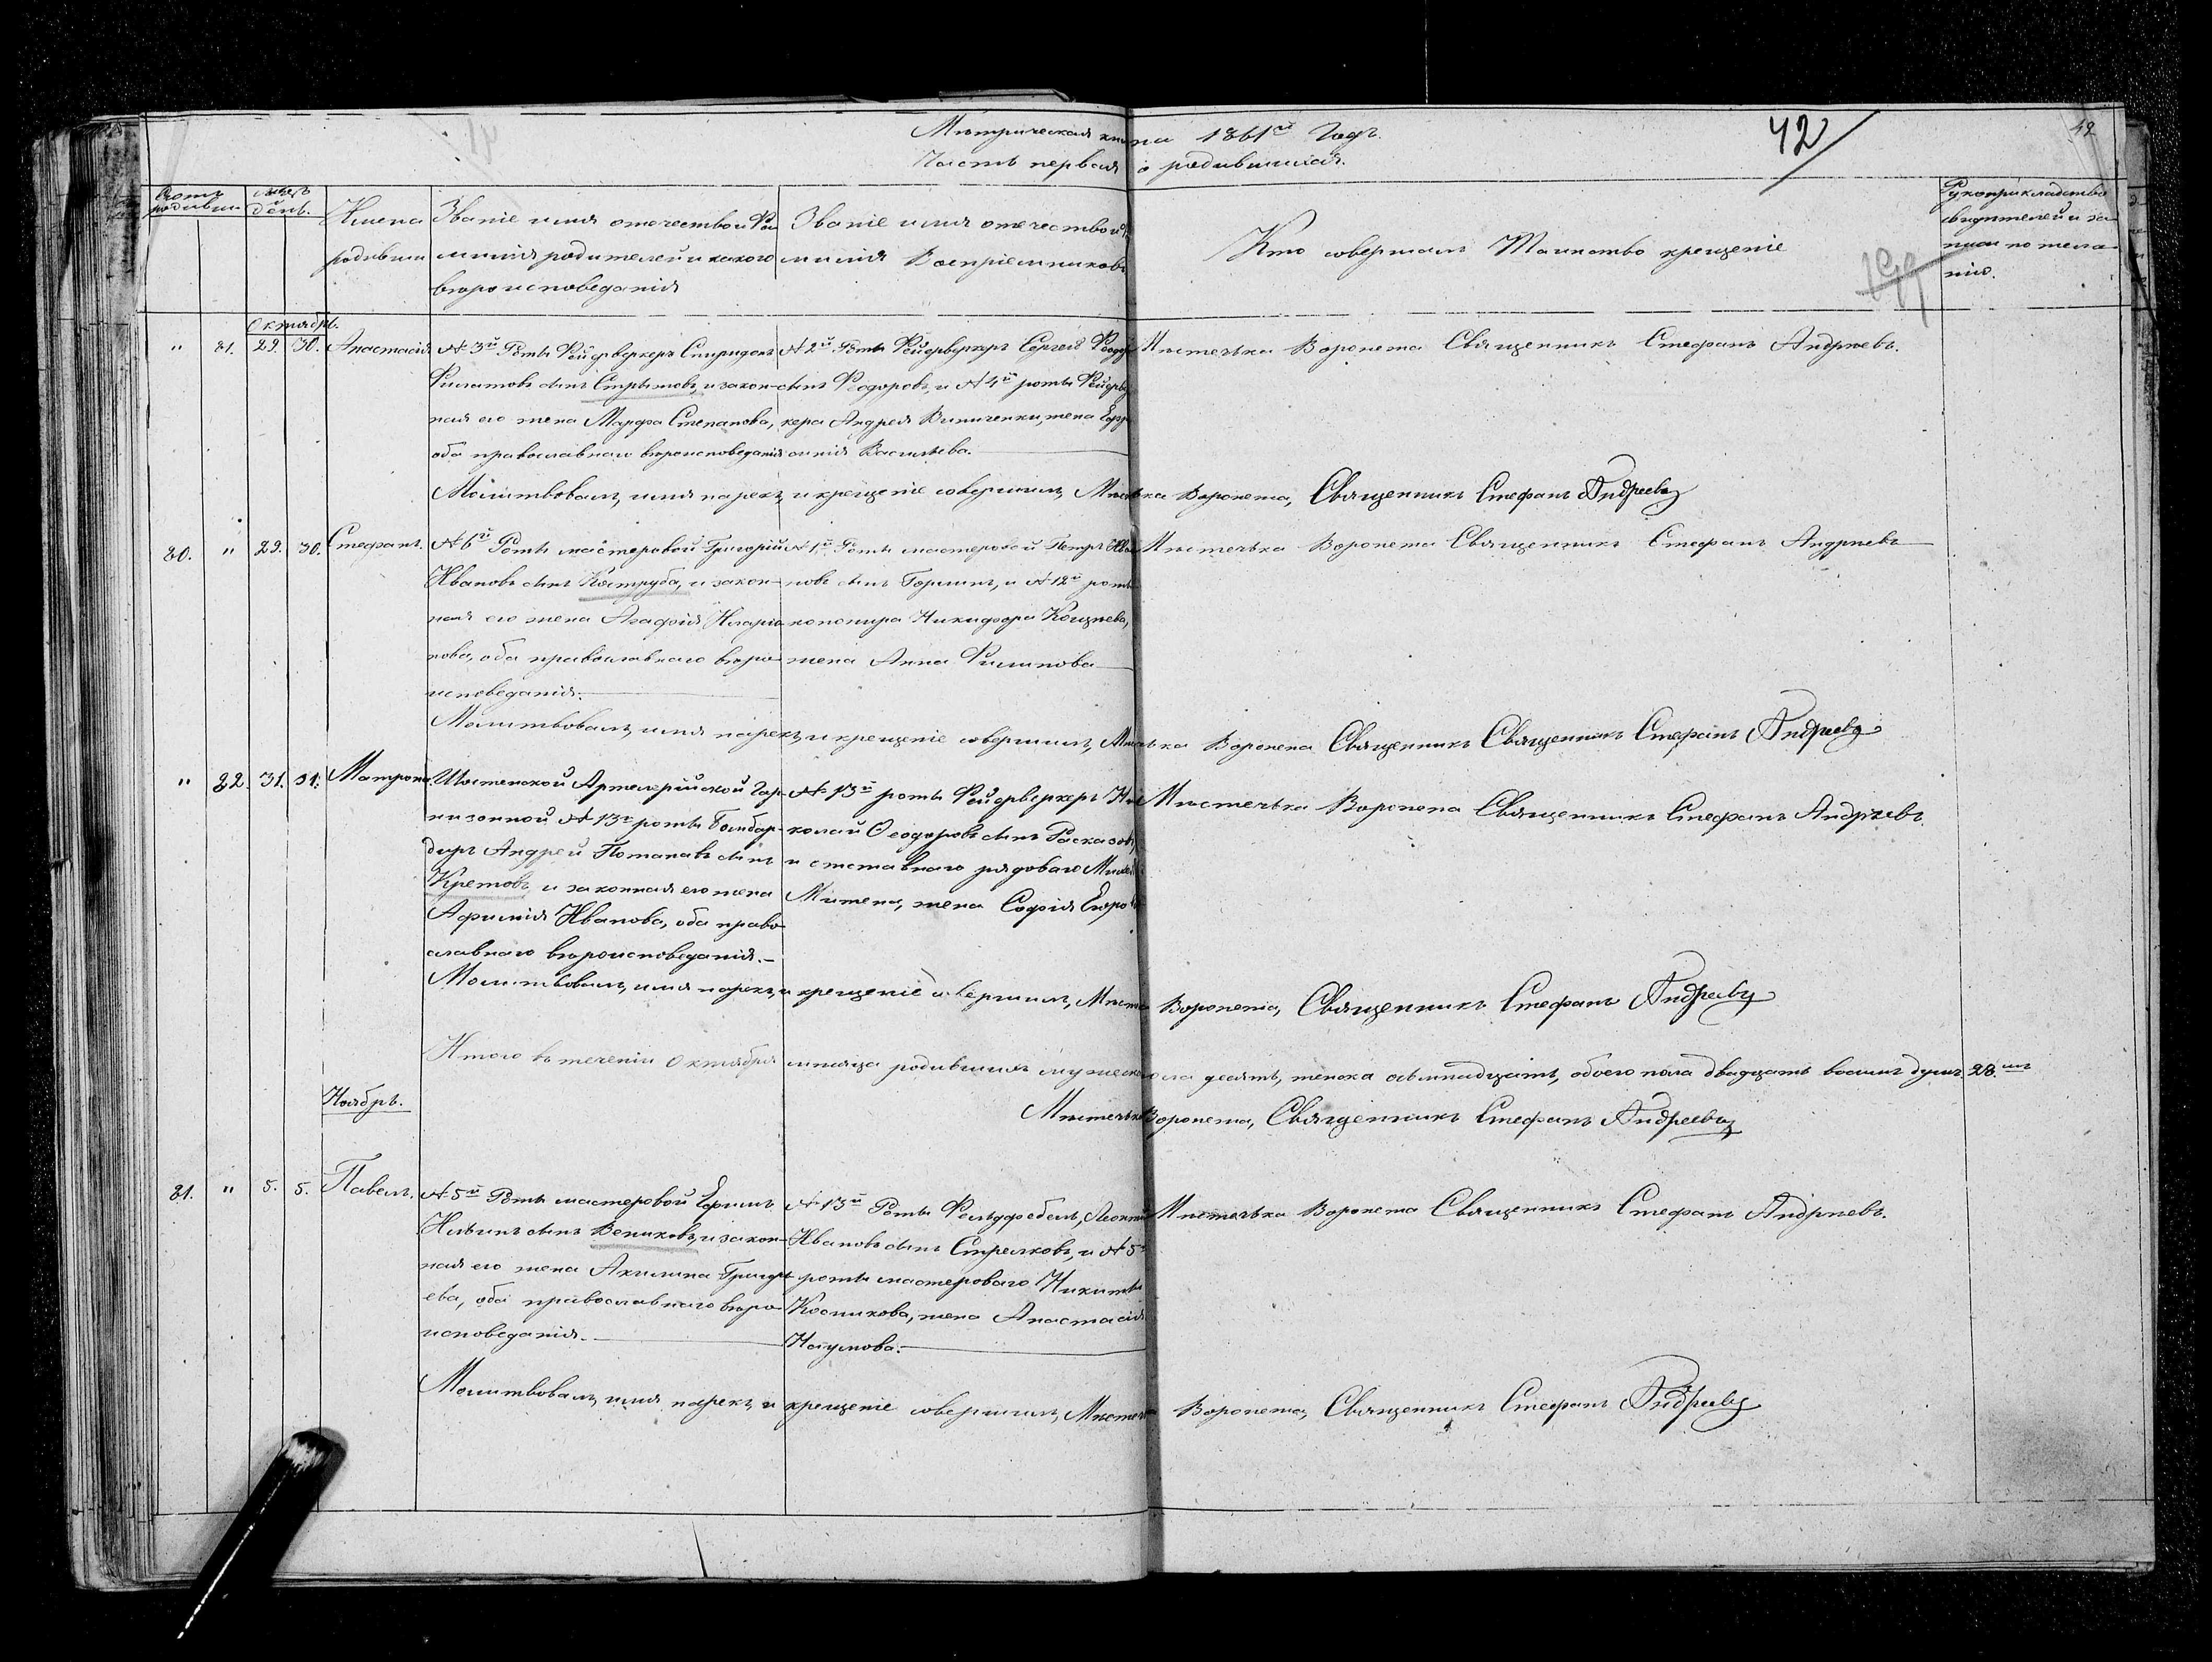 Метрическая книга 1861й Годъ.
42
49
Часть первая о родившихся.
Счетъ родивши
мѣсяцъ и день.
Имена родивши
Званіе имя отечество и Фамилія родителей и какого вѣроисповеданія
Званіе имя отечество и Фамилія Воспріемниковъ
Кто совершалъ Таинство крещеніе
Рукоприкладство свидѣтелей и записи по желанію.
Октябрь.
" 21. 29. 30. Анастасія
№ 3й Роты Фейерверкеръ Спиридонъ
Филатовъ сынъ Стрыжовъ, и закон-
ная его жена Марфа Степанова,
оба православнаго вѣроисповеданія
№ 2й Роты Фейерверкеръ Сергей Феодо
сынъ Феодоровъ, и № 4й роты Фейервер
кера Андрея Виниченки, жена Евф
имія Васильева.
Мѣстечка Воронежа Священникъ Стефанъ Андрѣевъ.
Молитвовалъ, имя нарекъ, и крещеніе совершилъ, Мѣстечка Воронежа, Священникъ Стефанъ Андреевъ
20. " 29. 30. Стефанъ.
№ 6й Роты мастеровой Григорій
Ивановъ сынъ Коструба, и закон-
ная его жена Агафія Иларіо
нова, оба православнаго вѣро-
исповеданія.
№ 1й Роты мастеровой Петръ Ива
новъ сынъ Горшинъ, и № 12й роты
канонира Никифора Кощѣева,
жена Анна Филипова
Мѣстечка Воронежа Священникъ Стефанъ Андрѣевъ
Молитвовалъ, имя нарекъ, и крещеніе совершилъ, Мѣстечка Воронежа Священникъ Священникъ Стефанъ Андреевъ
" 22. 31. 31. Матрона.
Шостенской Артилерійской Гар-
низонной № 13й роты Бомбар-
диръ Андрей Потаповъ сынъ
Кретовъ, и законная его жена
Афимія Иванова, оба право
славнаго вѣроисповеданія.-
№ 13й роты Фейерверкеръ Ни
колай Ѳеодоровъ сынъ Расказовъ,
и отставнаго рядоваго
жена Софія Егоро
Мѣстечка Воронежа Священникъ Стефанъ Андрѣевъ.
Молитвовалъ, имя нарекъ, и крещеніе совершилъ, Мѣстечка Воронежа, Священникъ Стефанъ Андреевъ
Итого въ теченіи Октября мѣсяца родившихъ мужеска пола десять, женска осьмнадцать, обоего пола двадцать восимъ душъ. 28.
Мѣстечка Воронежа, Священникъ Стефанъ Андреевъ
Ноябрь.
21. " 5. 5. Павелъ.
№ 5й Роты мастеровой Ефимъ
Ильинъ сынъ Вениковъ, и закон-
ная его жена Акилина Григорь
ева, оба православнаго вѣро-
исповеданія.
№ 13й Роты Фельдфебель, Леонтій
Ивановъ сынъ Стрелковъ, и № 5й
роты мастероваго Никиты
Косникова, жена Анастасія
Наумова.
Мѣстечка Воронежа Священникъ Стефанъ Андрѣевъ.
Молитвовалъ, имя нарекъ, и крещеніе совершилъ, Мѣстечка Воронежа, Священникъ Стефанъ Андреевъ